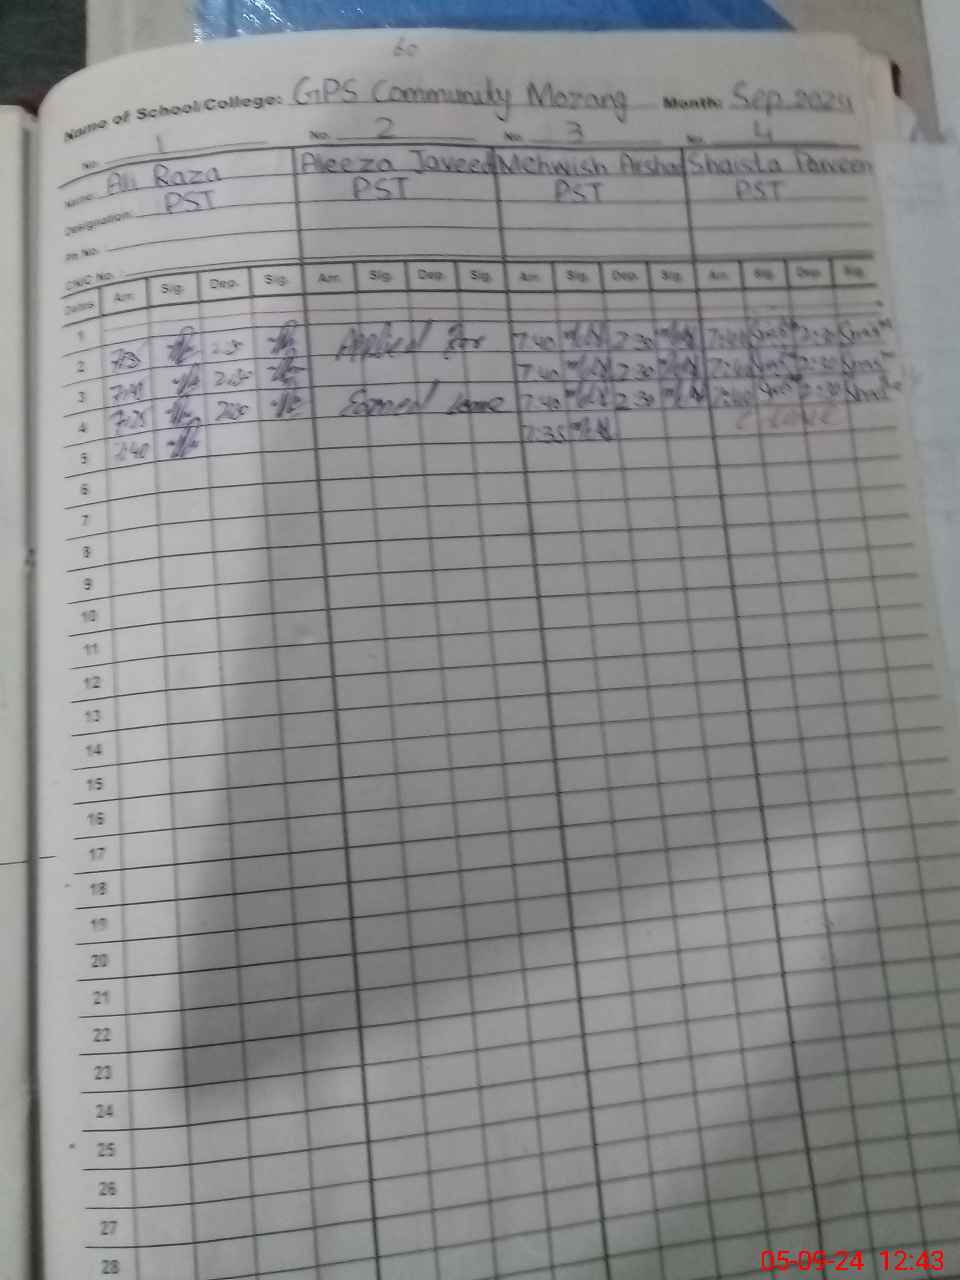 60
Name of School/College: GPS Community Mozang Month: Sep 2024
No. 1 No. 2 No. 3 No. 4
Name: Ali Raza Aleeza Javeed Mehwish Arshad Shaista Parveen
Designation: PST PST PST PST
Ph No.:
CNIC No.:
Dates Arr. Sig. Dep. Sig. Arr. Sig. Dep. Sig. Arr. Sig. Dep. Sig. Arr. Sig. Dep. Sig.
1
2 Applied for 7:40 2:30 7:40 2:30
3 7:40 7:40 2:30 7:40 2:30
4 7:25 2:30 Earned leave 7:40 2:30 7:40 2:30
5 7:40 7:35
6
7
8
9
10
11
12
13
14
15
16
17
18
19
20
21
22
23
24
25
26
27
28
05-09-24 12:43